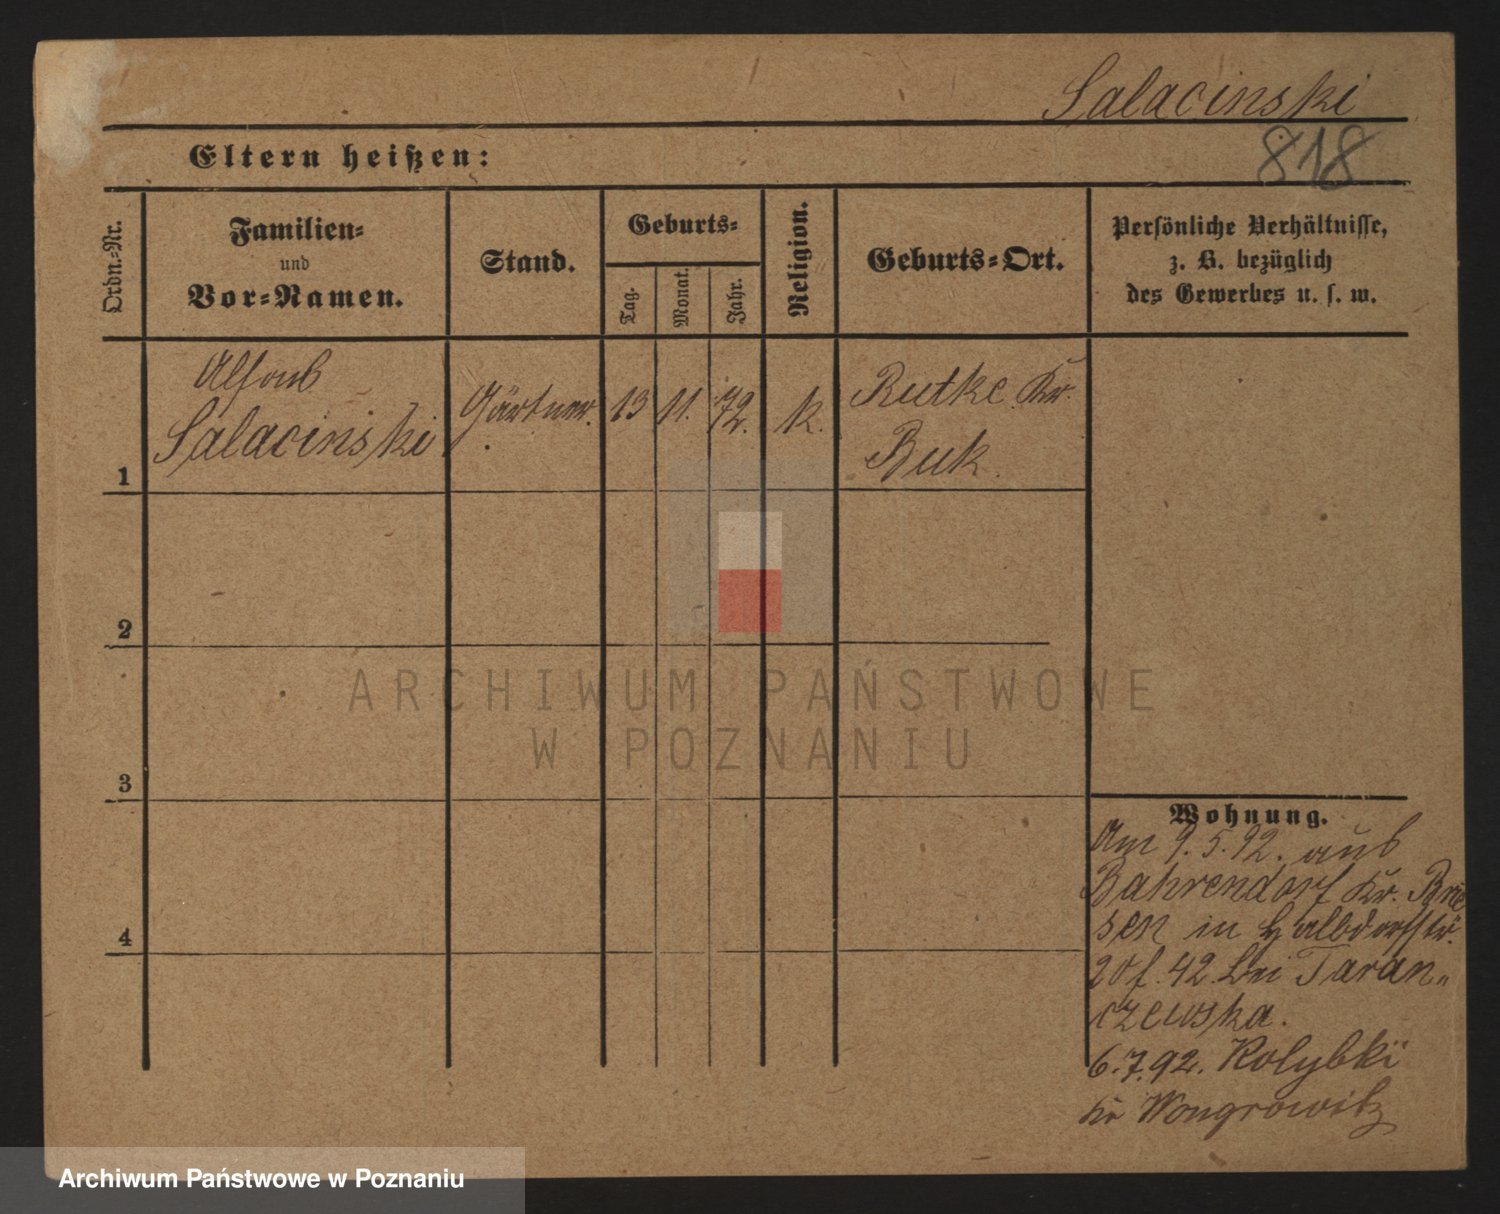 Salacinski
818
Eltern heißen:
Ordn.-Nr.
Familien-
und
Vor-Namen.
Stand.
Geburts-
Tag.
Monat.
Jahr.
Religion.
Geburts-Ort.
Persönliche Verhältnisse,
z. B. bezüglich
des Gewerbes u. s. w.
1
Alfons
Salacinski
Gärtner.
13
11.
72.
k.
Rutke Kr.
Buk.
2
3
4
Wohnung.
Am 9.5.92. aus
Bahrendorf Kr. Brie
sen in Halbdorfstr.
20 f. 42. bei Taran„
czewska.
6.7.92. Kolybki
Kr Wongrowitz
ARCHIWUM PAŃSTWOWE
W POZNANIU
Archiwum Państwowe w Poznaniu